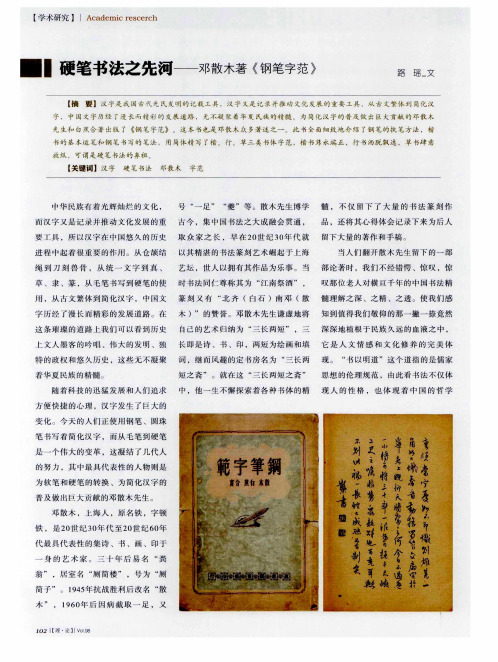 【学术研究】 | Academic rescerch
硬笔书法之先河——邓散木著《钢笔字范》
路 瑶_文
【摘 要】汉字是我国古代先民发明的记载工具，汉字又是记录并推动文化发展的重要工具，从古文繁体到简化汉
字，中国文字历经了漫长而精彩的发展道路，无不凝聚着华夏民族的精髓，为简化汉字的普及做出极大贡献的邓散木
先生和白蕉合著出版了《钢笔字范》，这本书也是邓散木众多著述之一。此书全面细致地介绍了钢笔的执笔方法，楷
书的基本运笔和钢笔书写的笔法，用简体特写了楷、行、草三类书体字范，楷书隽永端正，行书洒脱飘逸，草书肆意
放纵，可谓是硬笔书法的鼻祖。
【关键词】汉字 硬笔书法 邓散木 字范
中华民族有着光辉灿烂的文化，
而汉字又是记录并推动文化发展的重
要工具，所以汉字在中国悠久的历史
进程中起着很重要的作用。从仓颉结
绳到刀刻兽骨，从统一文字到真、
草、隶、篆，从毛笔书写到硬笔的使
用，从古文繁体到简化汉字，中国文
字历经了漫长而精彩的发展道路。在
这条璀璨的道路上我们可以看到历史
上文人墨客的吟唱、伟大的发明、独
特的政权和悠久历史，这些无不凝聚
着华夏民族的精髓。
随着科技的迅猛发展和人们追求
方便快捷的心理，汉字发生了巨大的
变化。今天的人们正使用钢笔、圆珠
笔书写着简化汉字，而从毛笔到硬笔
是一个伟大的变革，这凝结了几代人
的努力，其中最具代表性的人物则是
为软笔和硬笔的转换、为简化汉字的
普及做出巨大贡献的邓散木先生。
邓散木，上海人，原名铁，字钢
铁，是20世纪30年代至20世纪60年
代最具代表性的集诗、书、画、印于
一身的艺术家。三十年后易名“粪
翁”，居室名“厕简楼”，号为“厕
简子”。1945年抗战胜利后改名“散
木”，1960年后因病截取一足，又
号“一足”“夔”等。散木先生博学
古今，集中国书法之大成融会贯通，
取众家之长，早在20世纪30年代就
以其精湛的书法篆刻艺术崛起于上海
艺坛，世人以拥有其作品为乐事。当
时书法同仁尊称其为“江南祭酒”，
篆刻又有“北齐（白石）南邓（散
木）”的赞誉。邓散木先生谦虚地将
自己的艺术归纳为“三长两短”，三
长即是诗、书、印，两短为绘画和填
词，继而风趣的定书房名为“三长两
短之斋”。就在这“三长两短之斋”
中，他一生不懈探索着各种书体的精
髓，不仅留下了大量的书法篆刻作
品，还将其心得体会记录下来为后人
留下大量的著作和手稿。
当人们翻开散木先生留下的一部
部论著时，我们不经错愕、惊叹，惊
叹那位老人对横亘千年的中国书法精
髓理解之深、之精、之透，使我们感
知到值得我们敬仰的那一撇一捺竟然
深深地植根于民族久远的血液之中，
它是人文情感和文化修养的完美体
现。“书以明道”这个道指的是儒家
思想的伦理规范，由此看书法不仅体
现人的性格，也体现着中国的哲学
範字筆鋼
102 |【理·论】| Vol.98